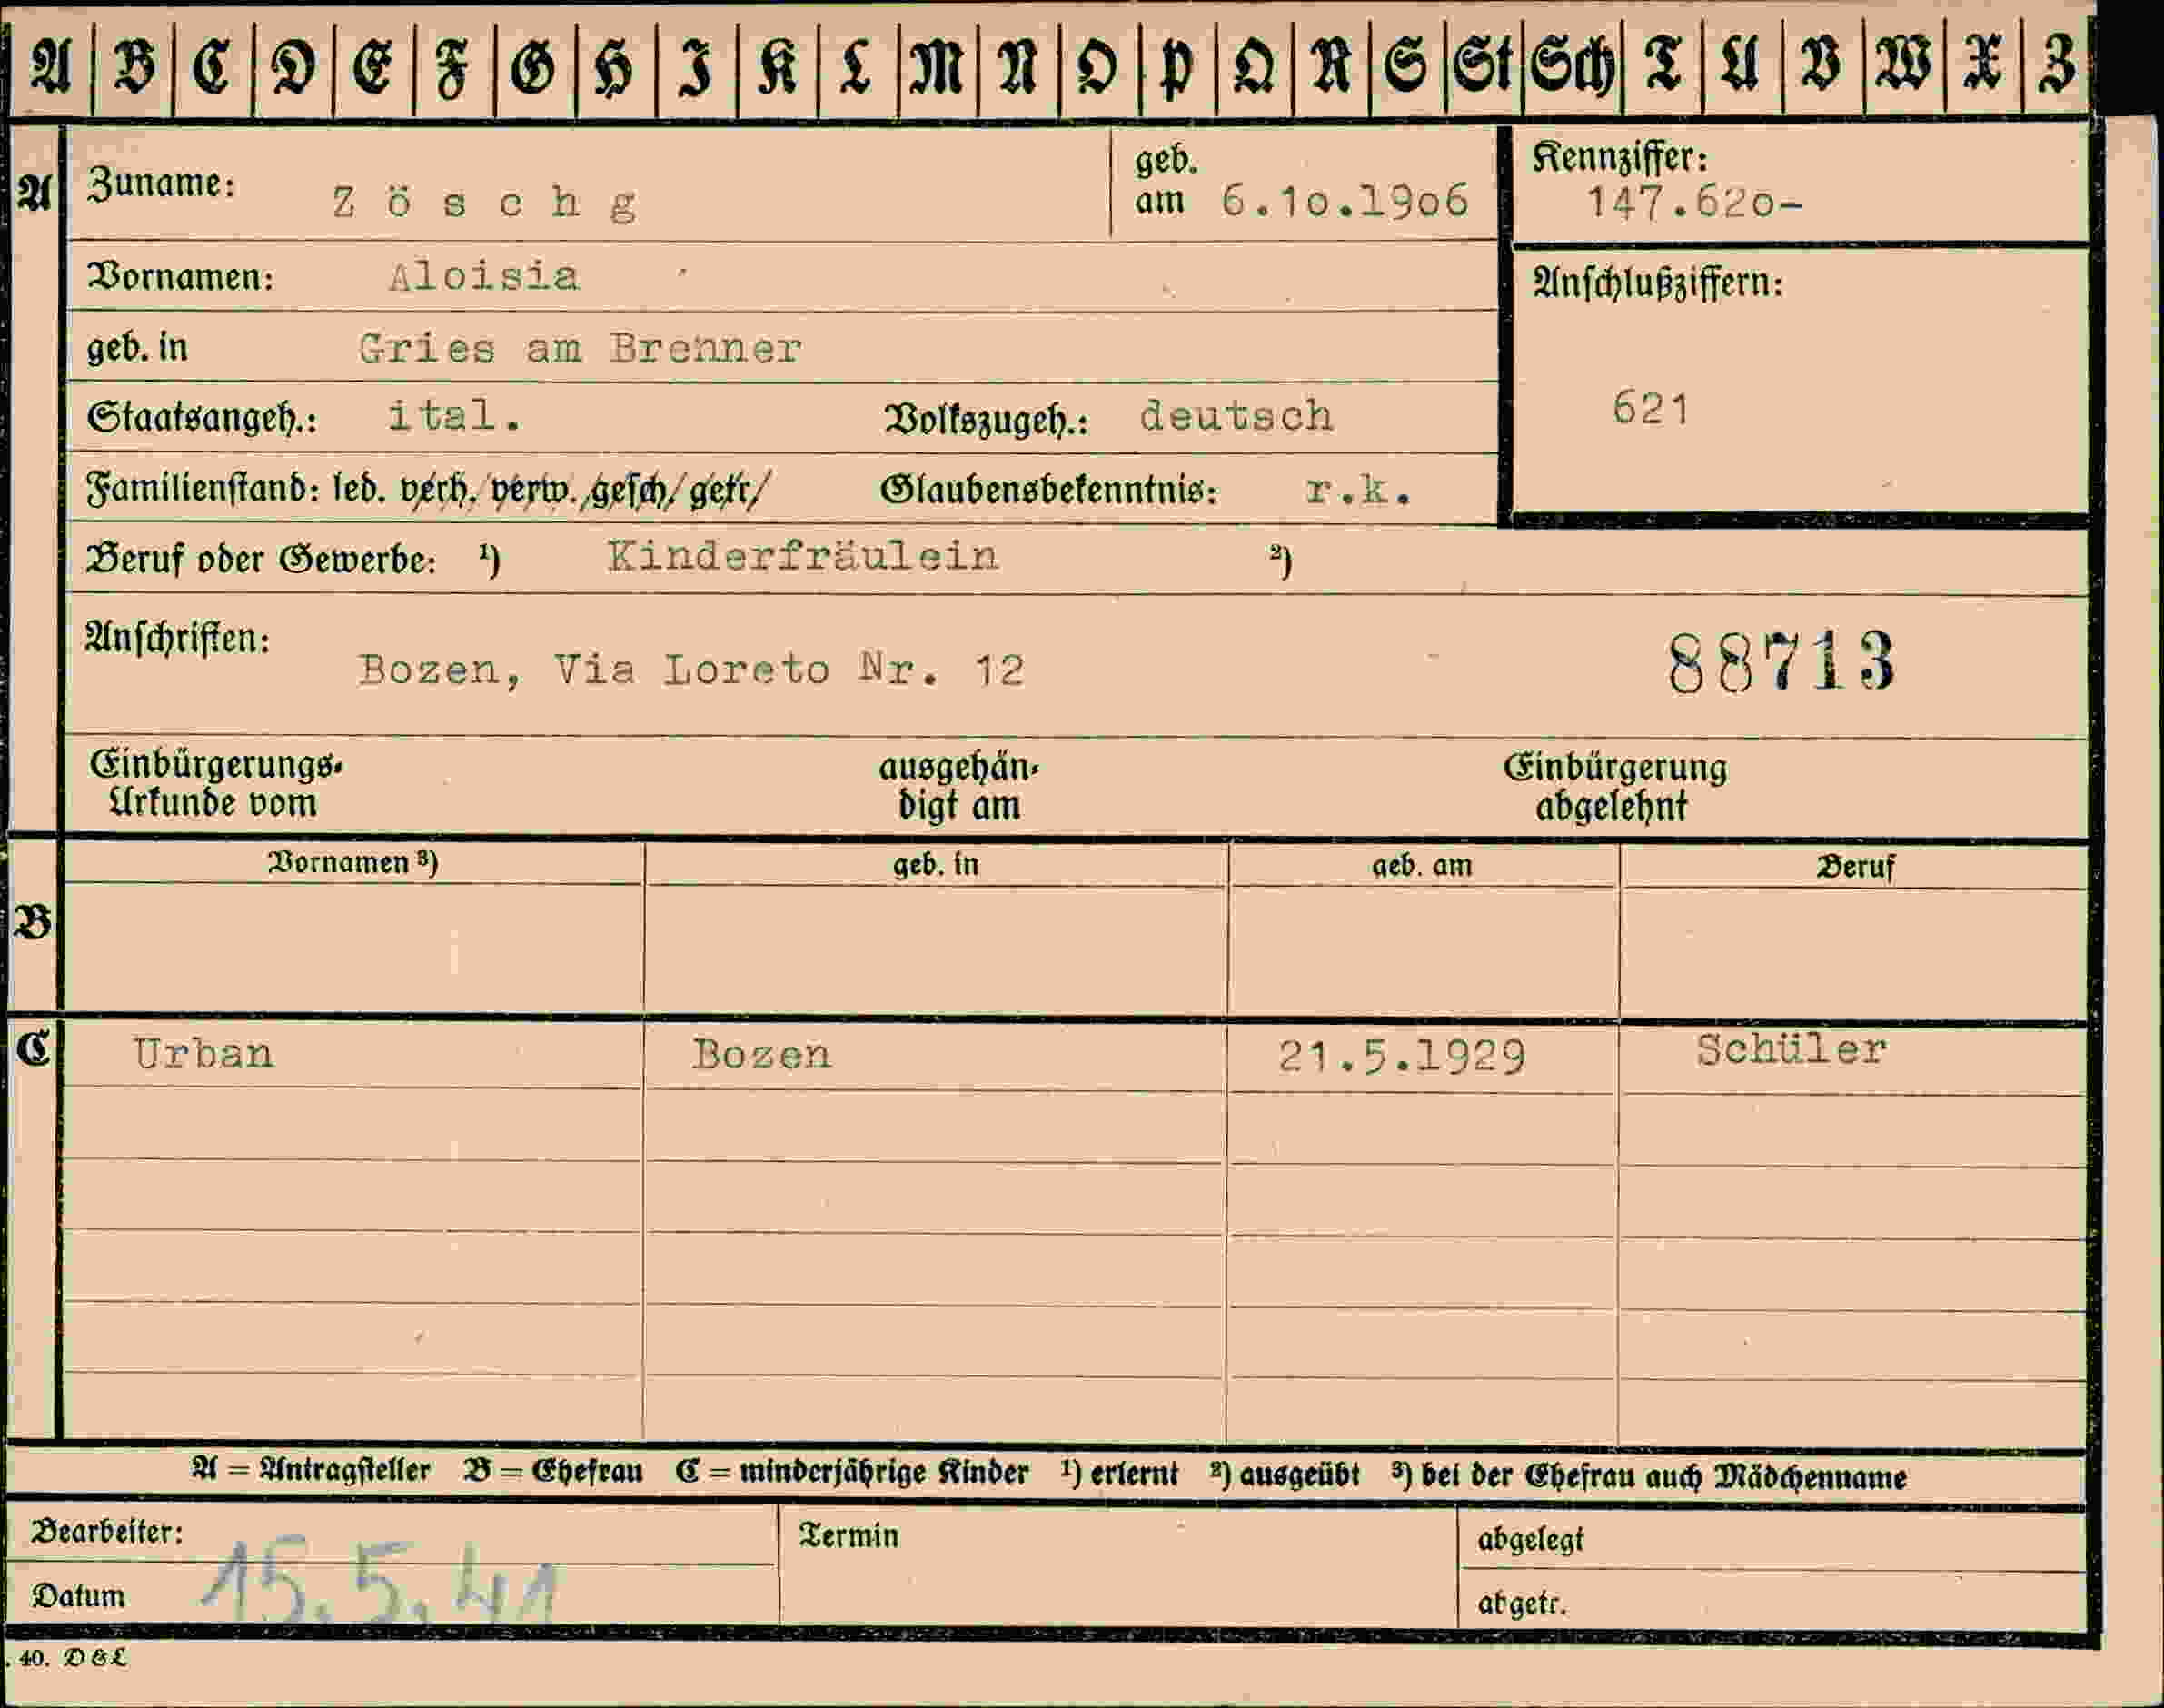 A B C D E F G H I K L M N O P Q R S St Sch T U V W X Z
A Zuname: Zöschg geb. am 6.10.1906 Kennziffer: 147.620-
Vornamen: Aloisia Anschlußziffern:
geb. in Gries am Brenner
Staatsangeh.: ital. Volkszugeh.: deutsch 621
Familienstand: led. verh. verw. gesch/ getr/ Glaubensbekenntnis: r.k.
Beruf oder Gewerbe: ¹) Kinderfräulein ²)
Anschriften: Bozen, Via Loreto Nr. 12 88713
Einbürgerungs- ausgehän- Einbürgerung
Urkunde vom digt am abgelehnt
Vornamen ³) geb. in geb. am Beruf
B
C Urban Bozen 21.5.1929 Schüler
A = Antragsteller B = Ehefrau C = minderjährige Kinder ¹) erlernt ²) ausgeübt ³) bei der Ehefrau auch Mädchenname
Bearbeiter: Termin abgelegt
Datum 15.5.41 abgetr.
. 40. D & L